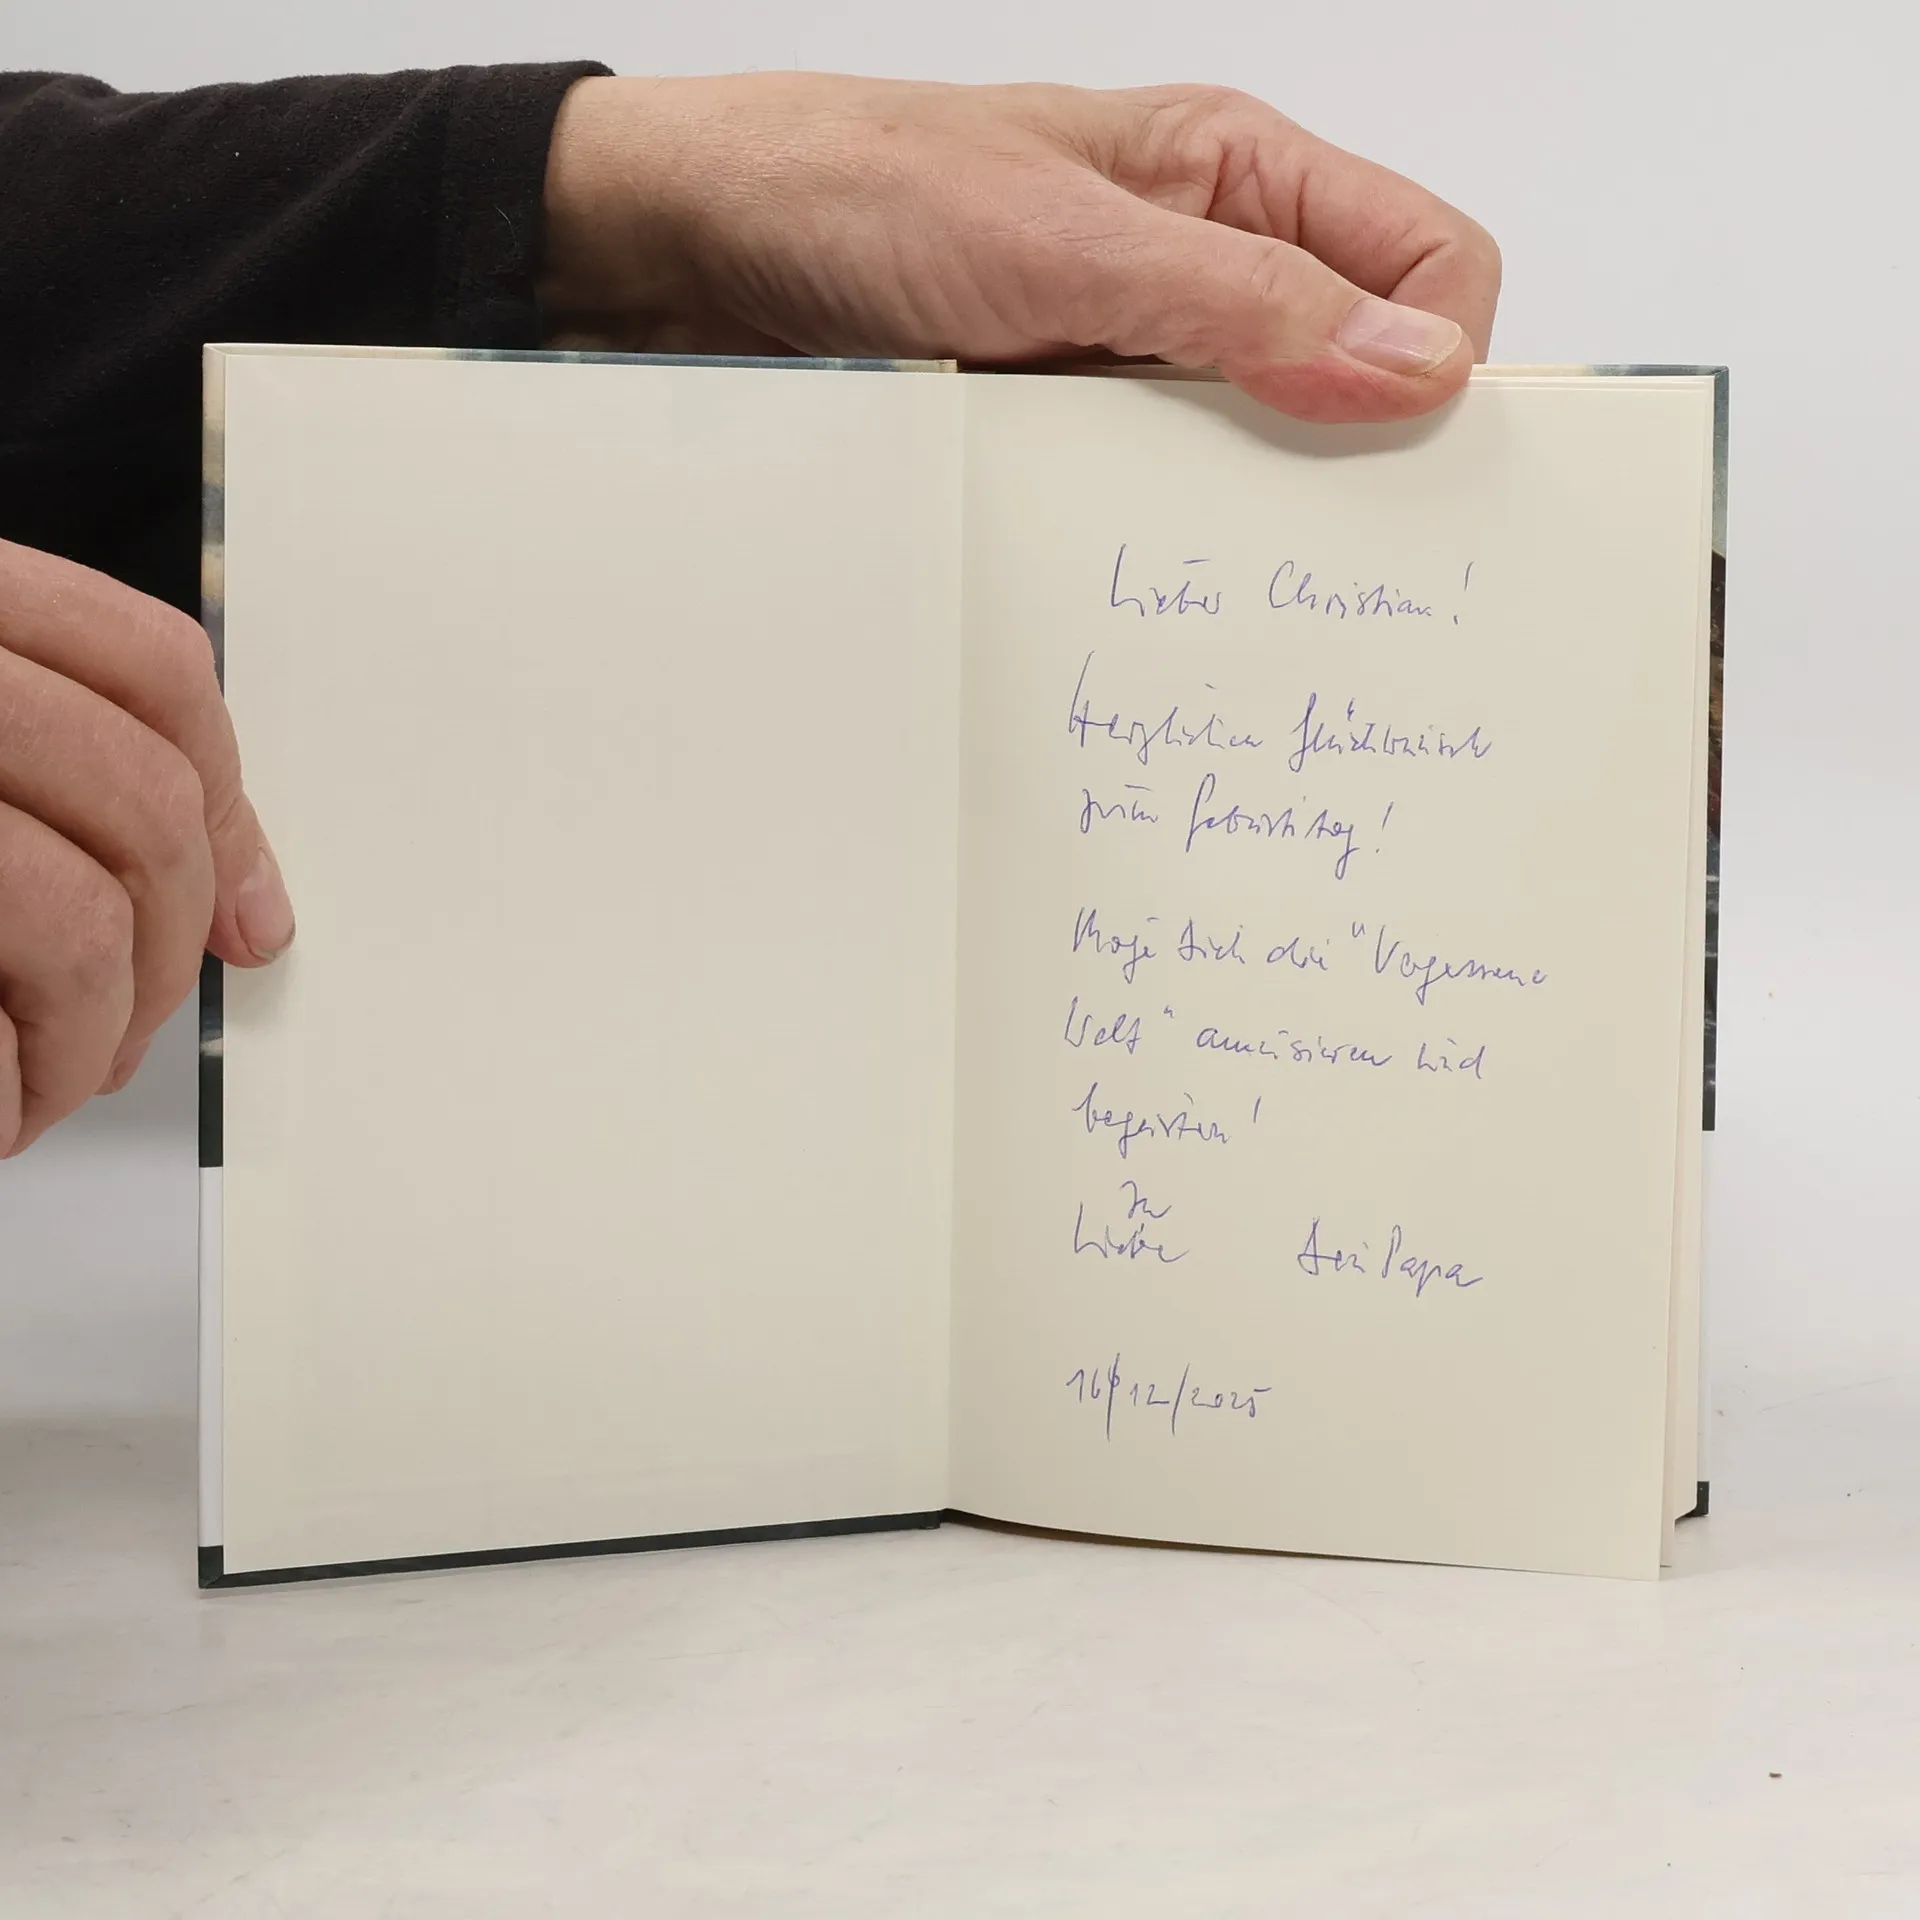 Lieber Christian!
Herzlichen Glückwunsch
zum Geburtstag!
Möge dich die "Vergessene
Welt" amüsieren und
begeistern!
In
Liebe Dein Papa
16/12/2025